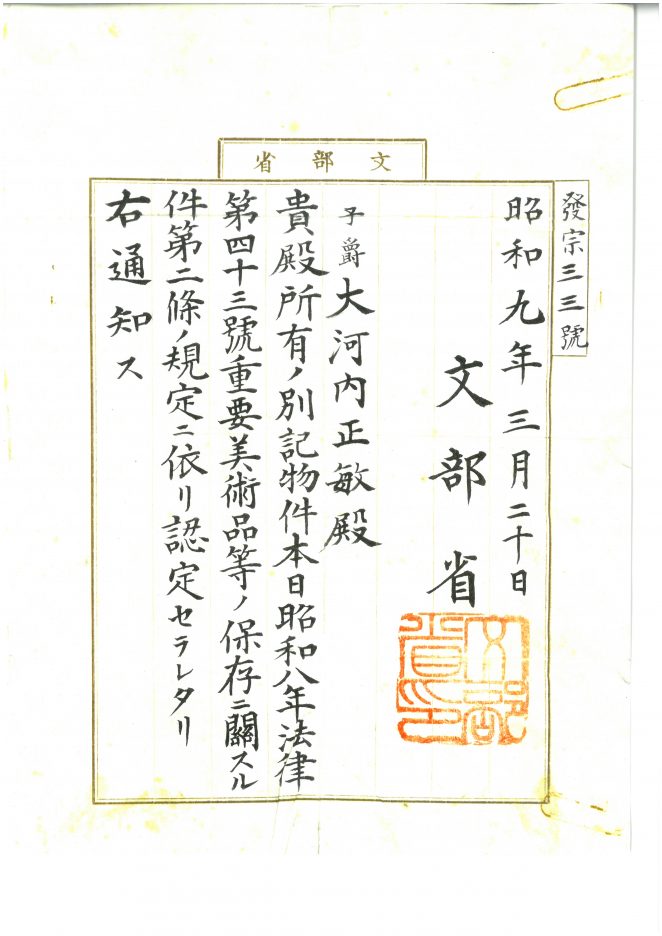 文部省
發宗三三號
昭和九年三月二十日
文部省
文部省印
子爵大河内正敏殿
貴殿所有ノ別記物件本日昭和八年法律
第四十三號重要美術品等ノ保存ニ關スル
件第二條ノ規定ニ依リ認定セラレタリ
右通知ス